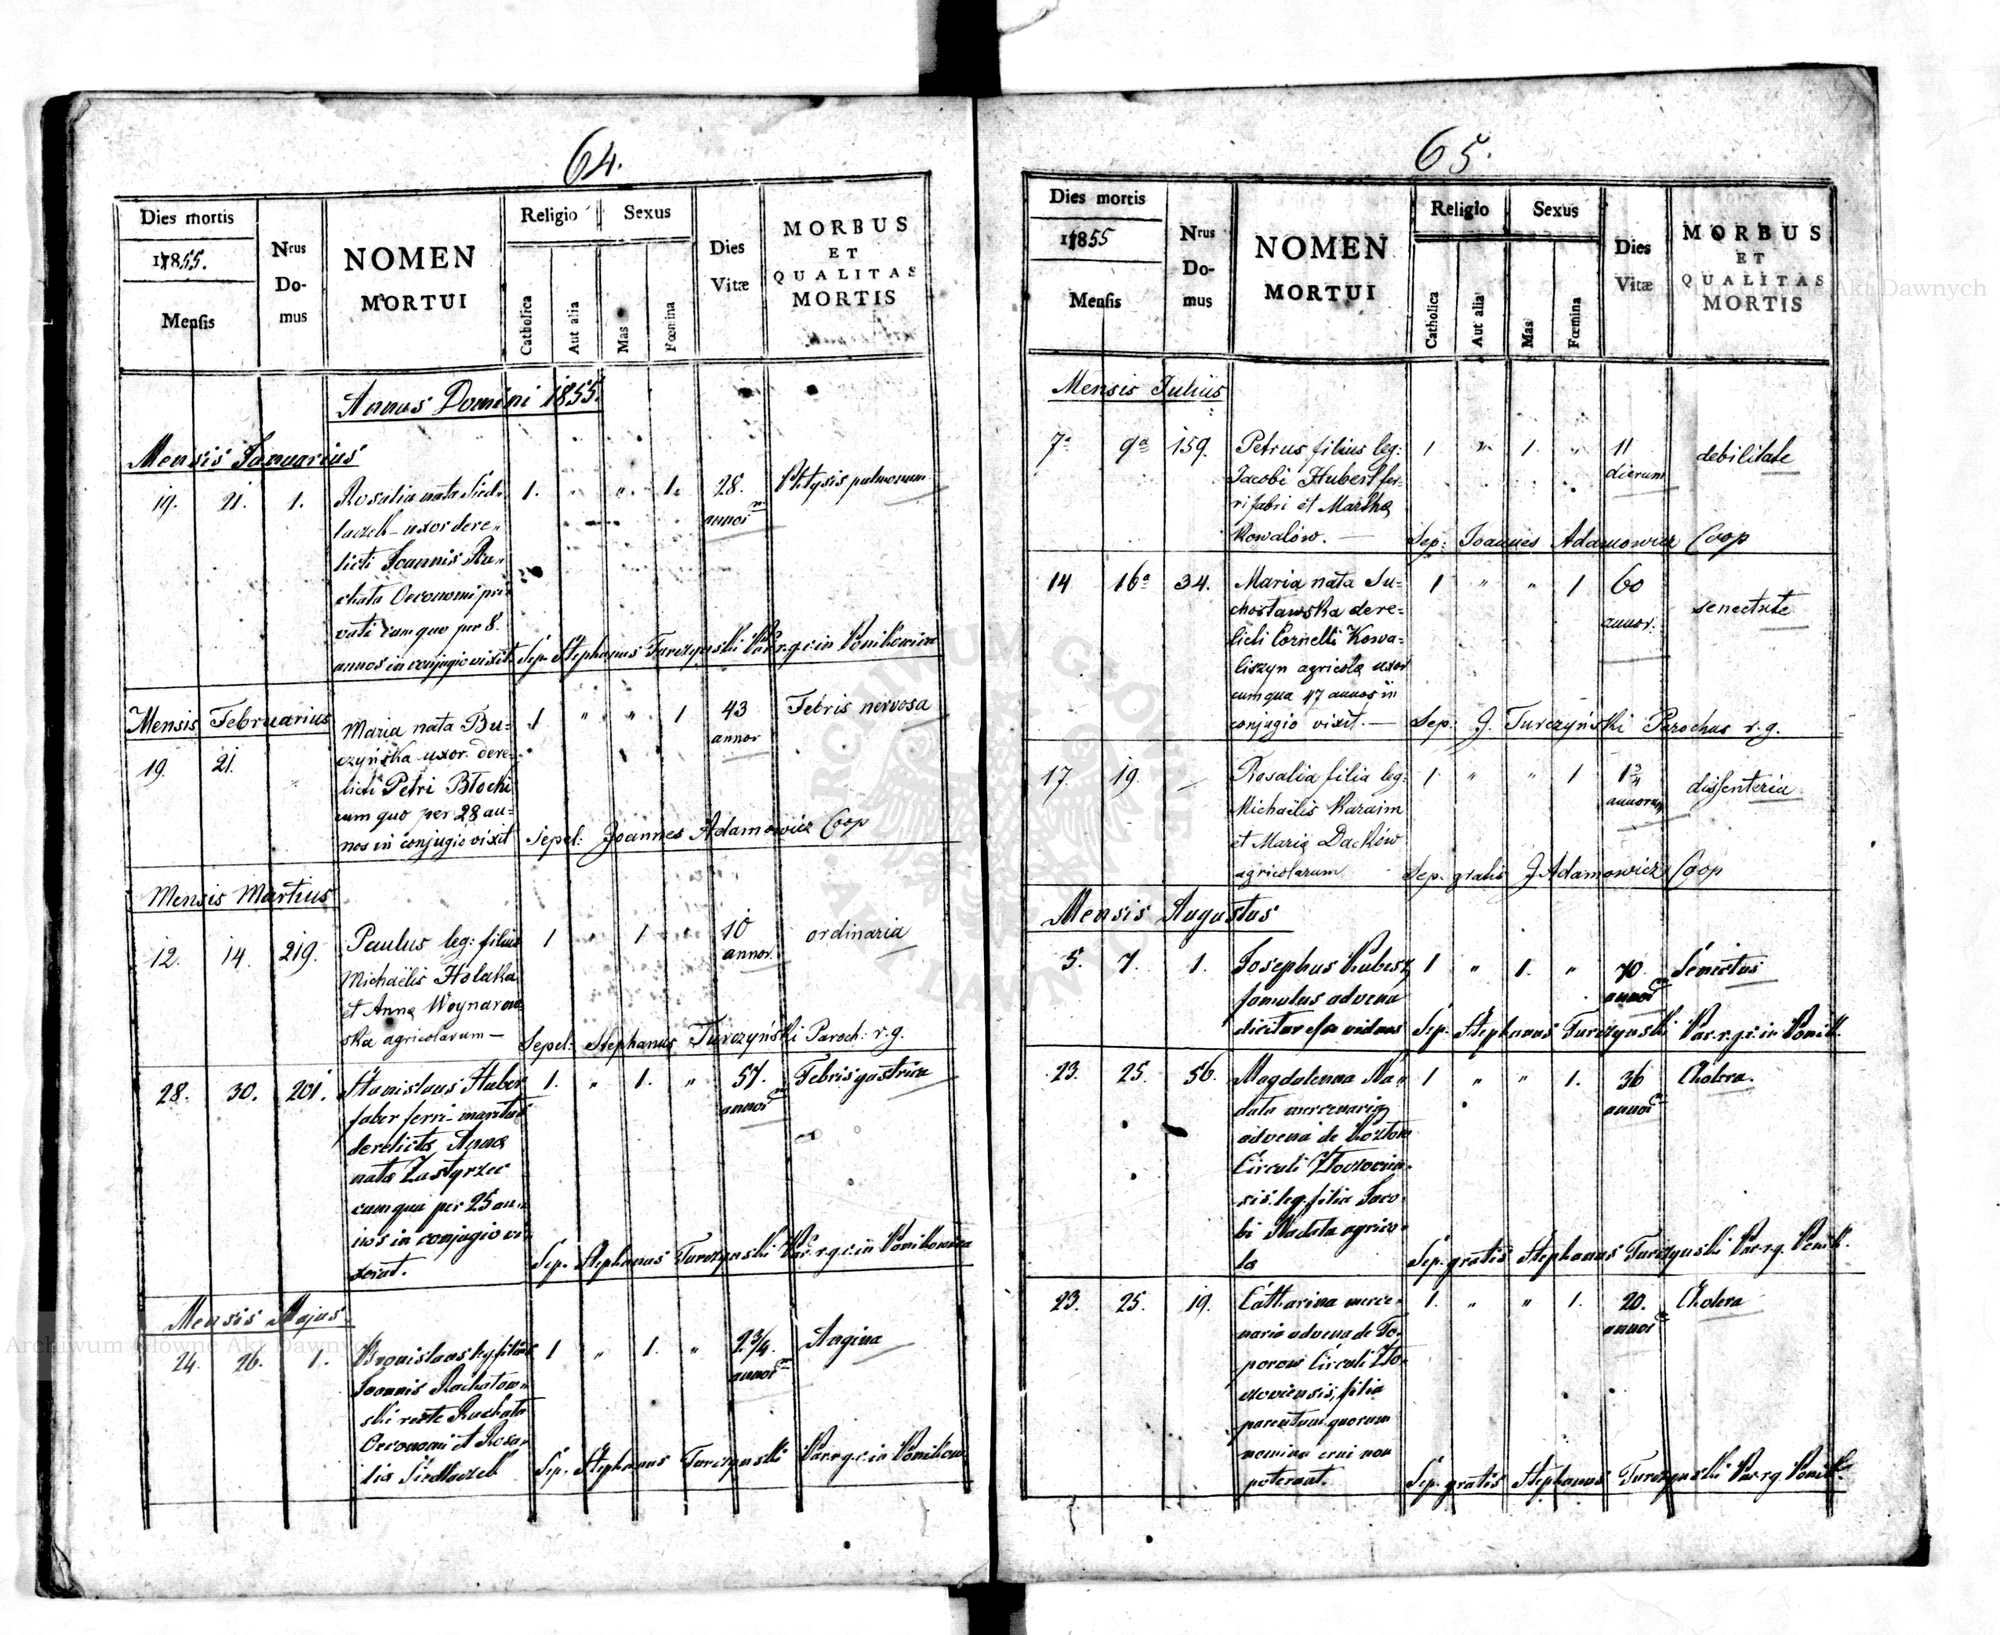 64.
Dies mortis
1855.
Mensis
Nrus Do- mus
NOMEN
MORTUI
Religio
Catholica
Aut alia
Sexus
Mas
Fœmina
Dies
Vitæ
MORBUS
ET
QUALITAS
MORTIS
Annus Domini 1855.
Mensis Januarius
19. 21. 1. Rosalia nata Sied- 1. " " 1. 28. Phtysis pulmonum
laczek uxor dere- annor
licti Joannis Ru-
chata Oeconomi pri-
vati cum quo per 8.
annos in conjugio vixit Sep. Stephanus Turczynski Par. r.g.c. in Ponikowica
Mensis Februarius
19. 21. Maria nata Bu- 1 " " 1 43 Febris nervosa
czyńska uxor dere- annor
licti Petri Błocki
cum quo per 28 an-
nos in conjugio vixit Sepel: Joannes Adamowicz Coop
Mensis Martius
12. 14. 219. Paulus leg: filius 1 " 1 " 10 ordinaria
Michaëlis Holuka annor.
et Anna Woynarow-
ska agricolarum — Sepel: Stephanus Turczyński Paroch: r.g.
28. 30. 201. Stanislaus Huber 1. " 1. " 57. Febris gastrica
faber ferri maritus annor
derelicta Anna
nata Zastyrzec
cum qua per 25 an-
nos in conjugio vi-
xerat. Sep. Stephanus Turczynski Par. r.g.c. in Ponikowica
Mensis Majus
24. 26. 1. Bronislaus leg. filius 1 " 1. " 2 3/4. Angina
Joannis Rachatow- annor
ski recte Ruchata
Oeconomi et Rosa-
lia Siedlaczek Sep. Stephanus Turczynski Par. r.g.c. in Ponikow.
65.
Dies mortis
1855
Mensis
Nrus Do- mus
NOMEN
MORTUI
Religio
Catholica
Aut alia
Sexus
Mas
Fœmina
Dies
Vitæ
MORBUS
ET
QUALITAS
MORTIS
Mensis Julius
7a 9a 159. Petrus filius leg: 1 " 1. " 11 debilitate
Jacobi Hubert fer- dierum
rifabri et Martha
Kowalów. — Sep: Joannes Adamowicz Coop
14 16a 34. Maria nata Su- 1 " " 1 60 senectute
chostawska dere- annor.
licti Cornelli Kowa-
liszyn agricolæ uxor
cum qua 47 annos in
conjugio vixit. — Sep: J. Turczyński Parochus r.g.
17. 19. — Rosalia filia leg: 1 " " 1 1 3/4 dissenteria
Michaëlis Karaim annorum
et Maria Dacków
agricolarum Sep. gratis J Adamowicz Coop
Mensis Augustus
5. 7. 1. Josephus Kubesz 1 " 1. " 70 Senectus
famulus advena annor
dicitur esse viduus Sep. Stephanus Turczynski Par. r.g.c. in Ponik.
23. 25. 56. Magdalenna Na- 1 " " 1. 36 Cholera.
data mercenaria annor
advena de
Circuli Złoczovien-
sis leg: filia Jaco-
bi Nadata agrico-
la Sep. gratis Stephanus Turczynski Par. r.g. Ponik.
23. 25. 19. Catharina merce- 1. " " 1. 20. Cholera
naria advena de To- annor
porow Circuli Zło-
czoviensis, filia
parentum quorum
nomina erui non
poterant. Sep. gratis Stephanus Turczynski Par. r.g. Ponik.
Archiwum Główne Akt Dawnych
ARCHIWUM GŁÓWNE AKT DAWNYCH